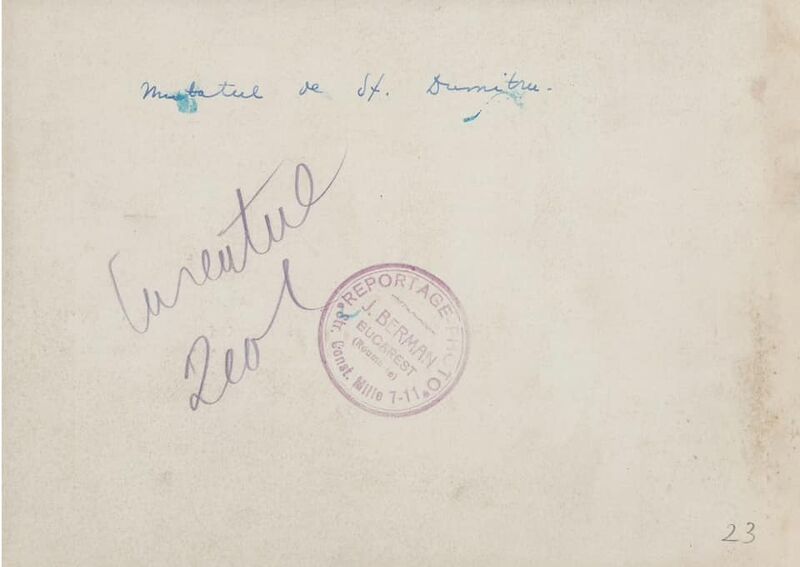 Mutatul de Sf. Dumitru.
Curentul
REPORTAGE PHOTO
J. BERMAN
BUCAREST
(Roumanie)
Str. Const. Mille 7-11
23